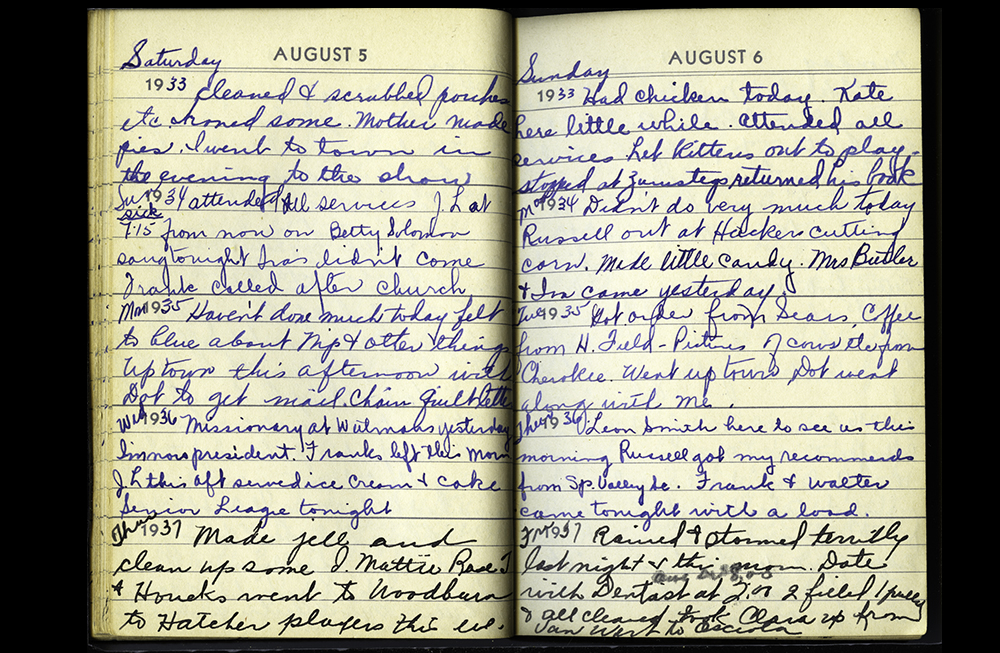 Saturday
AUGUST 5
1933 cleaned & scrubbed porches
etc. ironed some. Mother made
pies. I went to town in
the evening to the show
Su 1934 attended all services J. L. at
sick
7:15 from now on Betty Solomon
sang tonight Iras didn't come
Frank called after church
Mon 1935 Haven't done much today felt
to blue about Nip & other things
Uptown this afternoon with
Dot to get mail. Chain Quilt
Wed 1936 Missionary at Watmans yesterday
Im now president. Franks left this morn
J. L this aft served ice cream & cake
Senior League tonight
Thur 1937 Made jell and
clean up some I. Mattie Rose
& Houcks went to Woodburn
to Hatcher players this eve.
AUGUST 6
Sunday
1933 Had chicken today. Kate
here little while. Attended all
services Let Kittens out to play.
stopped at returned his book
Mo 1934 Didn't do very much today
Russell out at Hackers cutting
corn. Made little candy. Mrs Butler
& Im came yesterday.
Tue 1935 Got order from Sears, Coffee
from H. Field - Pictures of cows etc from
Cherokee. Went up town Dot went
along with me.
Thur 1936 Leon Smith here to see us this
morning Russell got my recommends
from Sp. Valley Sc. Frank & Walter
came tonight with a load.
Fr 1937 Rained & stormed terribly
last night & this morn. Date
with Dentist at 2:00 2 filled 1
& all cleaned took Clara up from
Van Wert to Osceola